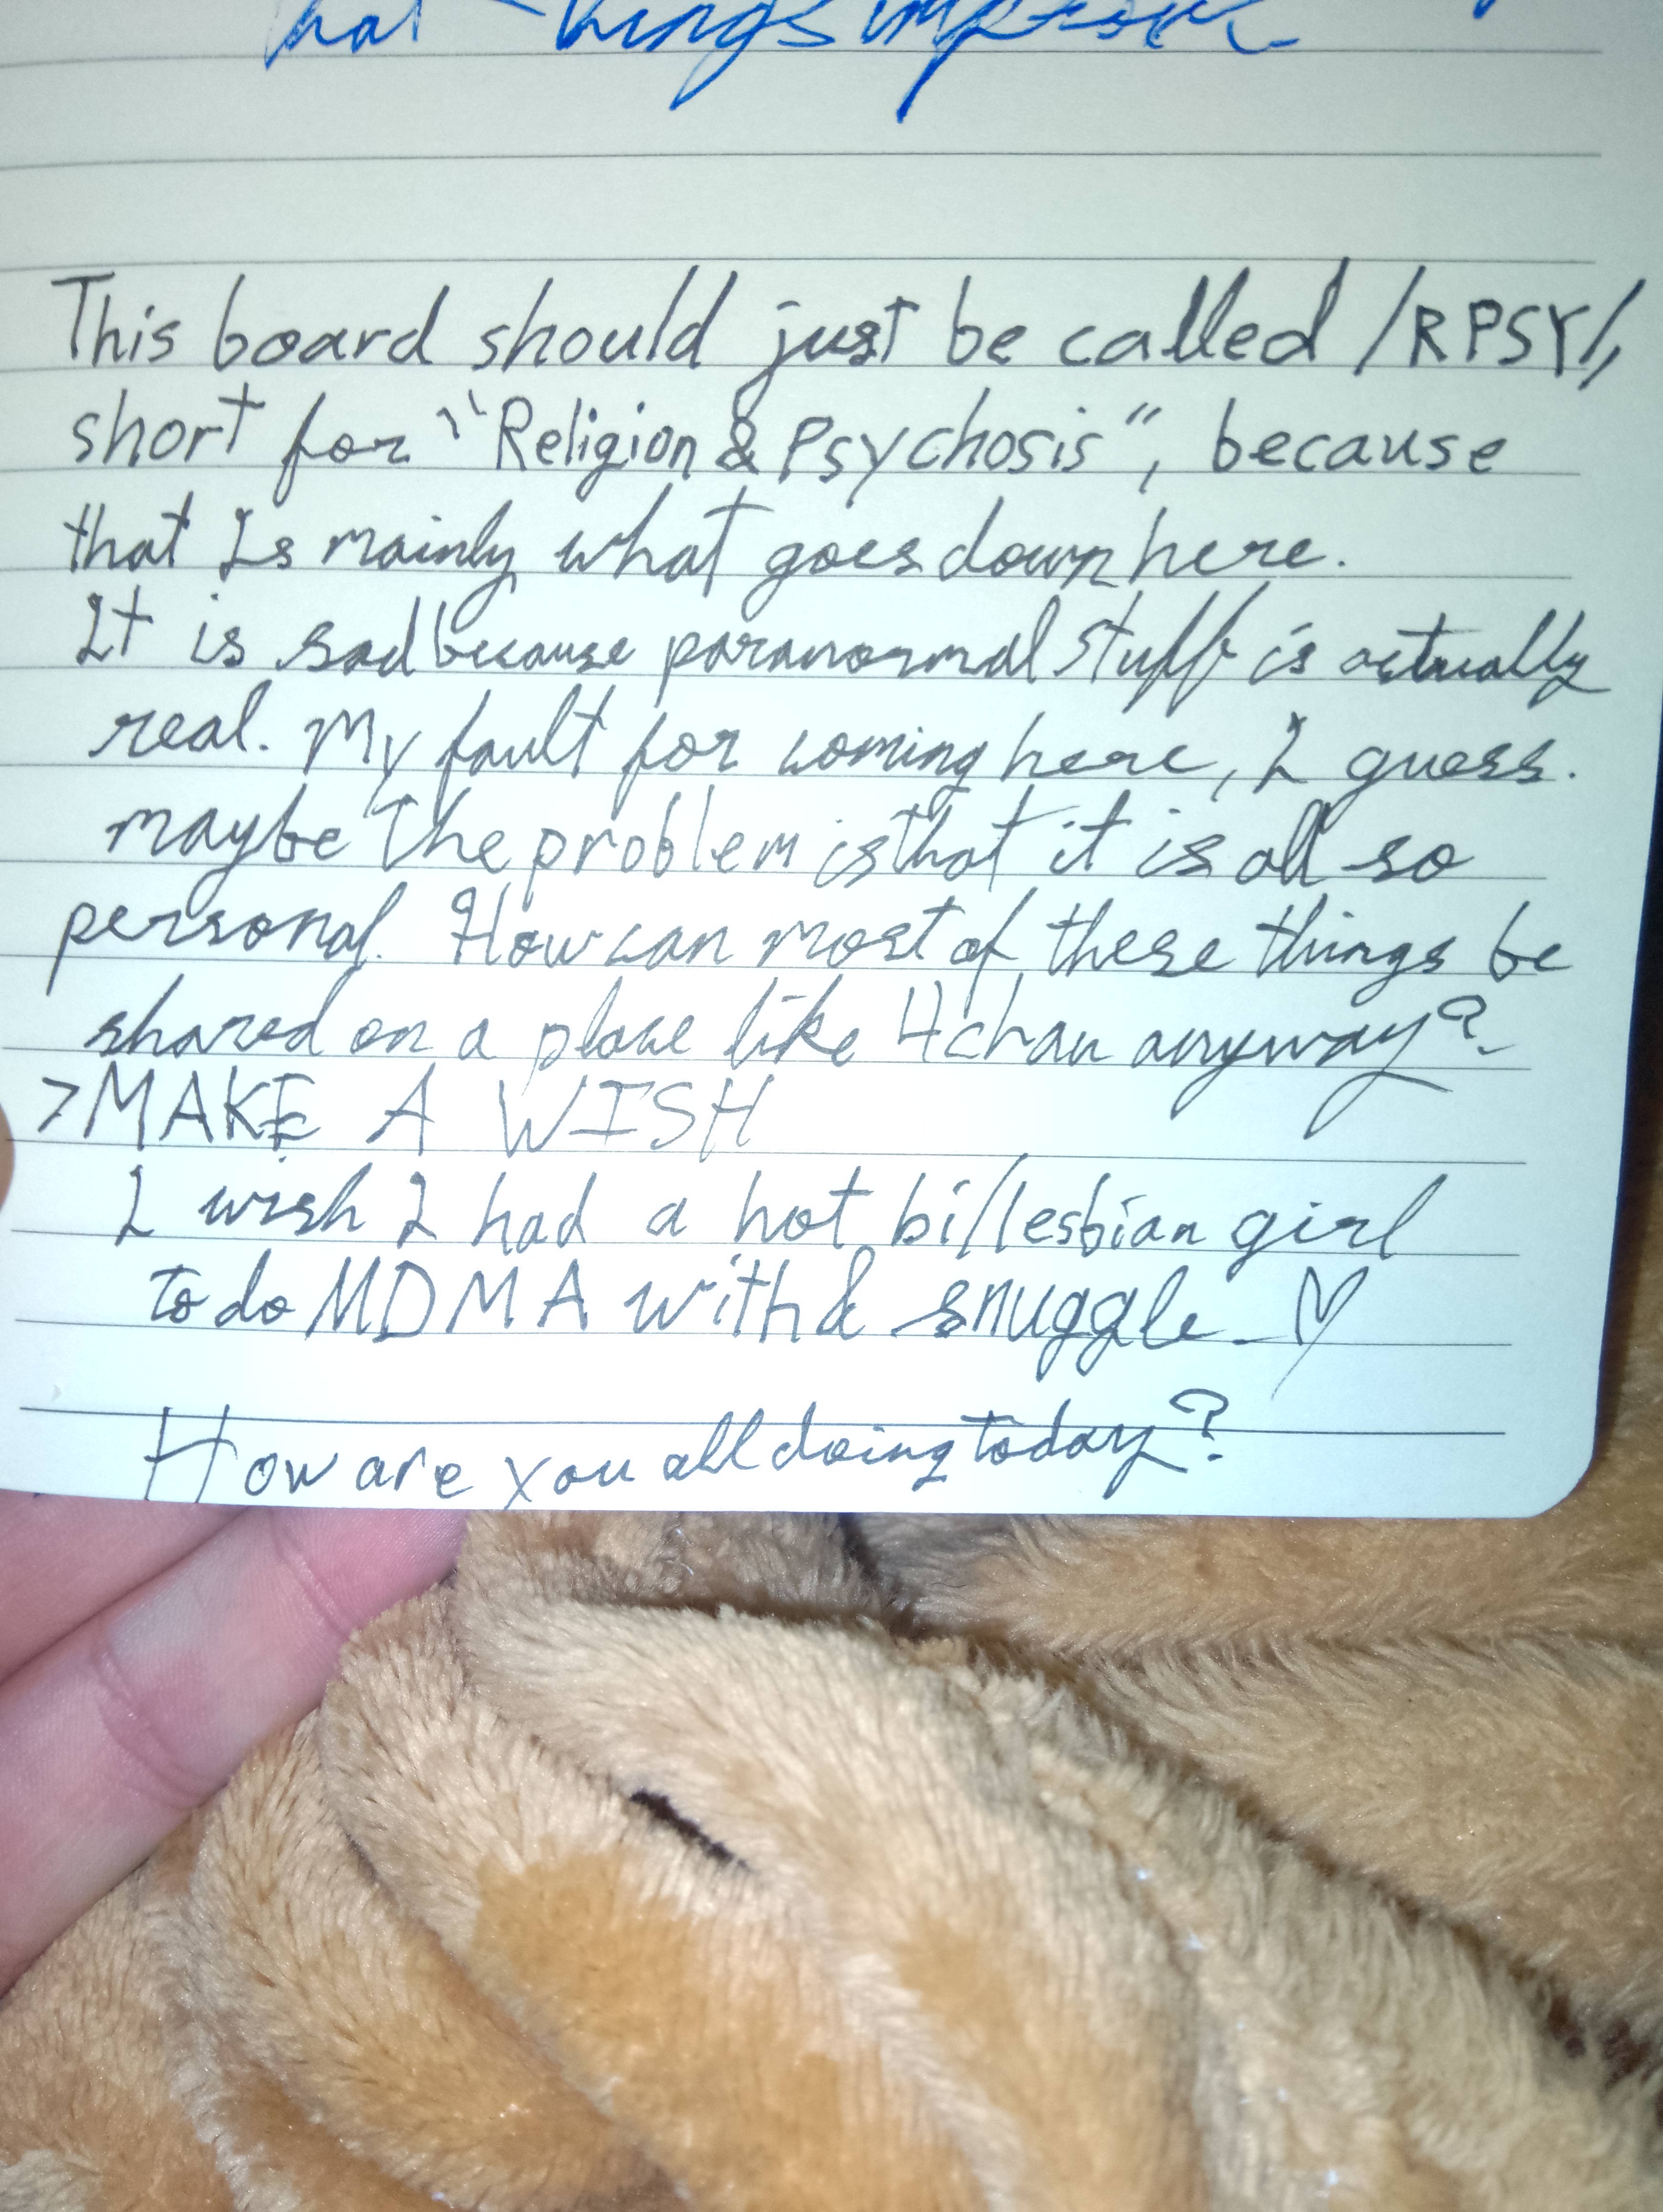 that things improve
This board should just be called /RPSY/,
short for "Religion & Psychosis", because
that Is mainly what goes down here.
It is sad because paranormal stuff is actually
real. My fault for coming here, I guess.
maybe the problem is that it is all so
personal. How can most of these things be
shared on a place like 4chan anyway?
>MAKE A WISH
I wish I had a hot bi/lesbian girl
to do MDMA with & snuggle ♡
How are you all doing today?